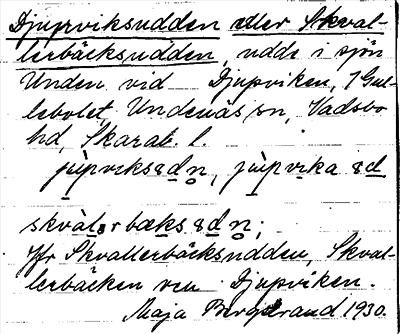 Djupviksudden eller Skval-
lerbäcksudden, udde i sjön
Unden vid Djupviken, 1 Gul-
lebolet, Undenäs sn, Vadsbo
hd, Skarab. l.
jùpviksɐdn, jùpvika ɐd
skvàlərbæksɐdn;
Jfr Skvallerbäcksudden, Skval-
lerbäcken vid Djupviken.
Maja Bergstrand 1930.